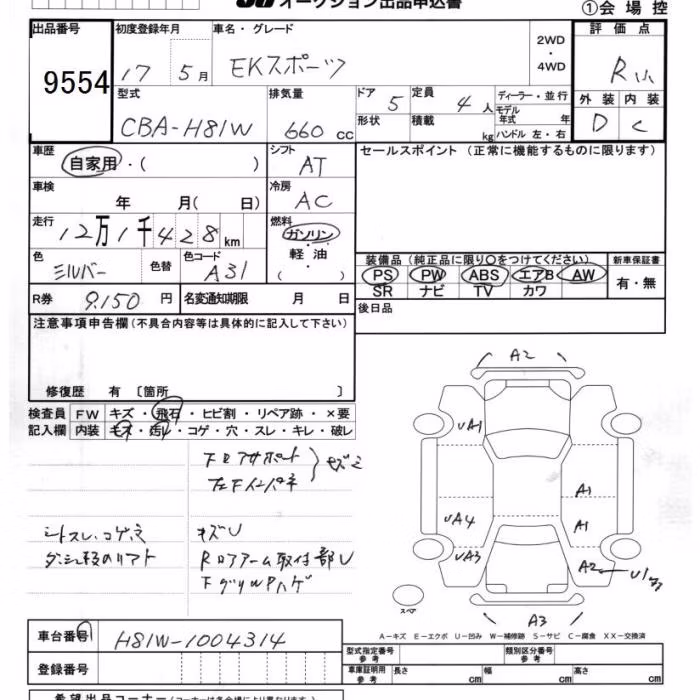 オークション出品申込書
①会場控
出品番号 初度登録年月 車名・グレード 評価点
9554 17 5月 EKスポーツ 2WD・4WD R
型式 排気量 ドア 5 定員 4人 ディーラー・並行 外装 内装
CBA-H81W 660cc 形状 積載 kg モデル年式 年 D C
ハンドル 左・右
車歴 自家用・( ) シフト AT セールスポイント (正常に機能するものに限ります)
車検 年 月( 日) 冷房 AC
走行 12万1千428km 燃料 ガソリン
軽油
( )
色 シルバー 色替 色コード A31 装備品 (純正品に限り○をつけてください) 新車保証書
PS PW ABS エアB AW 有・無
SR ナビ TV カワ
R券 9.150円 名変通知期限 月 日 後日品
注意事項申告欄(不具合内容等は具体的に記入して下さい)
修復歴 有 〔箇所 〕
検査員 FW キズ・飛石・ヒビ割・リペア跡・×要
記入欄 内装 キズ・汚レ・コゲ・穴・スレ・キレ・破レ
A2
UA1
A1
UA4 A1
UA3 A2
スペア
A3
シトスレ、コゲ
キズU
Rロアアーム取付部U
A-キズ E-エクボ U-凹み W-補修跡 S-サビ C-腐食 XX-交換済
車台番号 H81W-1004314
登録番号
型式指定番号 参考 類別区分番号 参考
車庫証明用 参考 長さ cm 幅 cm 高さ cm
希望出品コーナー